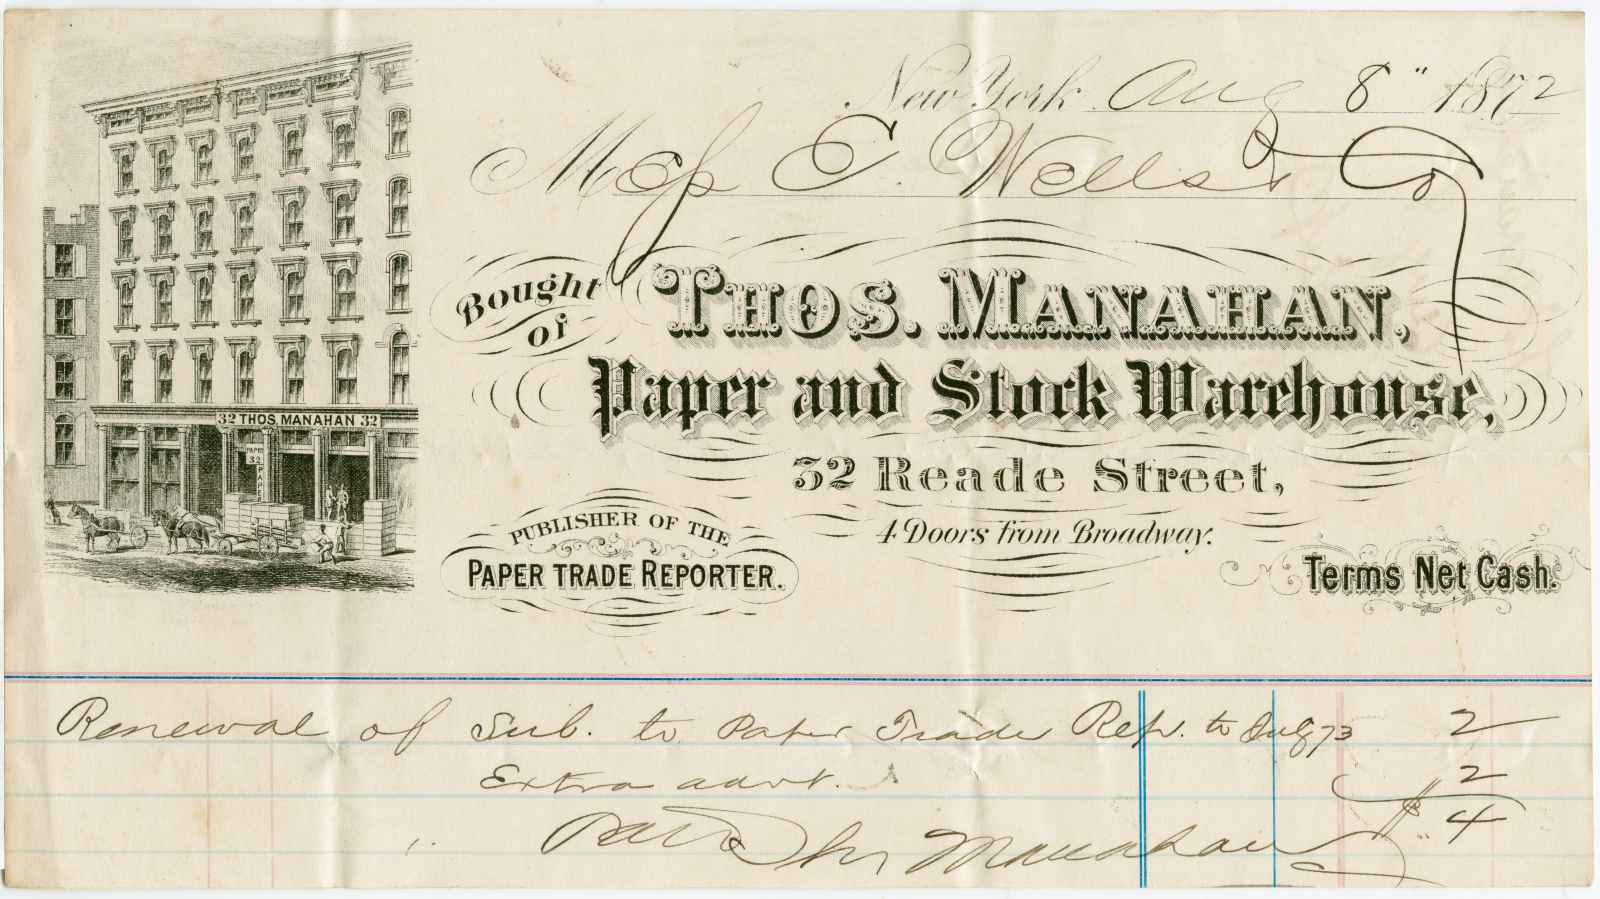 New York Aug 8" 1872
Mess C. Wells & Co
Bought of
THOS. MANAHAN,
Paper and Stock Warehouse,
32 Reade Street,
4 Doors from Broadway.
PUBLISHER OF THE
PAPER TRADE REPORTER.
Terms Net Cash.
32 THOS. MANAHAN 32
PAPER
32
Renewal of Sub. to Paper Trade Rep. to July 73 2
Extra advt. 2
$ 4
Thos Manahan